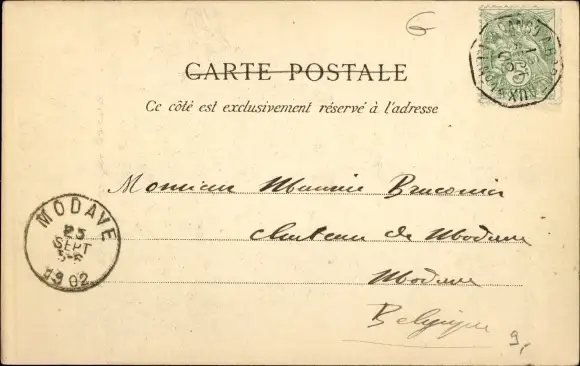 G
CARTE POSTALE
Ce côté est exclusivement réservé à l'adresse
Monsieur Maurice Braconier
Chateau de Modave
Modave
Belgique
MODAVE
25
SEPT
5-6
1902
9,